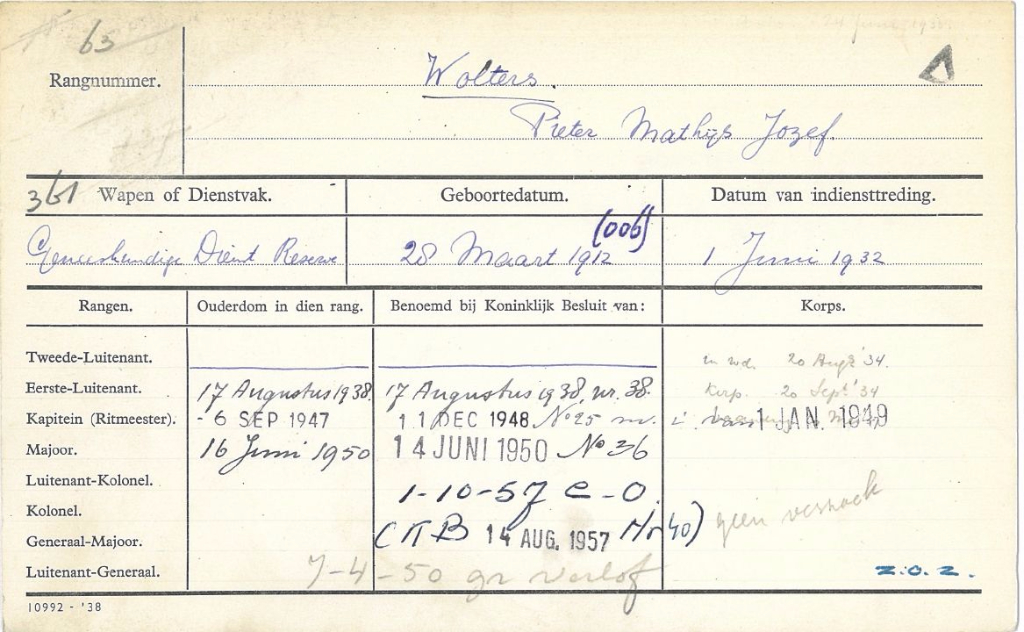 63
Rangnummer.
Wolters.
Pieter Mathijs Jozef.
361 Wapen of Dienstvak. Geboortedatum. Datum van indiensttreding.
(006)
Geneeskundige Dienst Reserve 28 Maart 1912 1 Juni 1932
Rangen. Ouderdom in dien rang. Benoemd bij Koninklijk Besluit van: Korps.
Tweede-Luitenant. 20 Aug. '34.
Eerste-Luitenant. 17 Augustus 1938. 17 Augustus 1938, nr. 38. Korp. 20 Sept '34
Kapitein (Ritmeester). - 6 SEP 1947 11 DEC 1948 No 25 m. i. 1 JAN. 1949
Majoor. 16 Juni 1950 14 JUNI 1950 No 36
Luitenant-Kolonel. 1-10-57 e-o.
Kolonel. geen
Generaal-Majoor. (KB 14 AUG. 1957 Nr 40)
Luitenant-Generaal. 7-4-50 gr verlof z.o.z.
10992 - '38